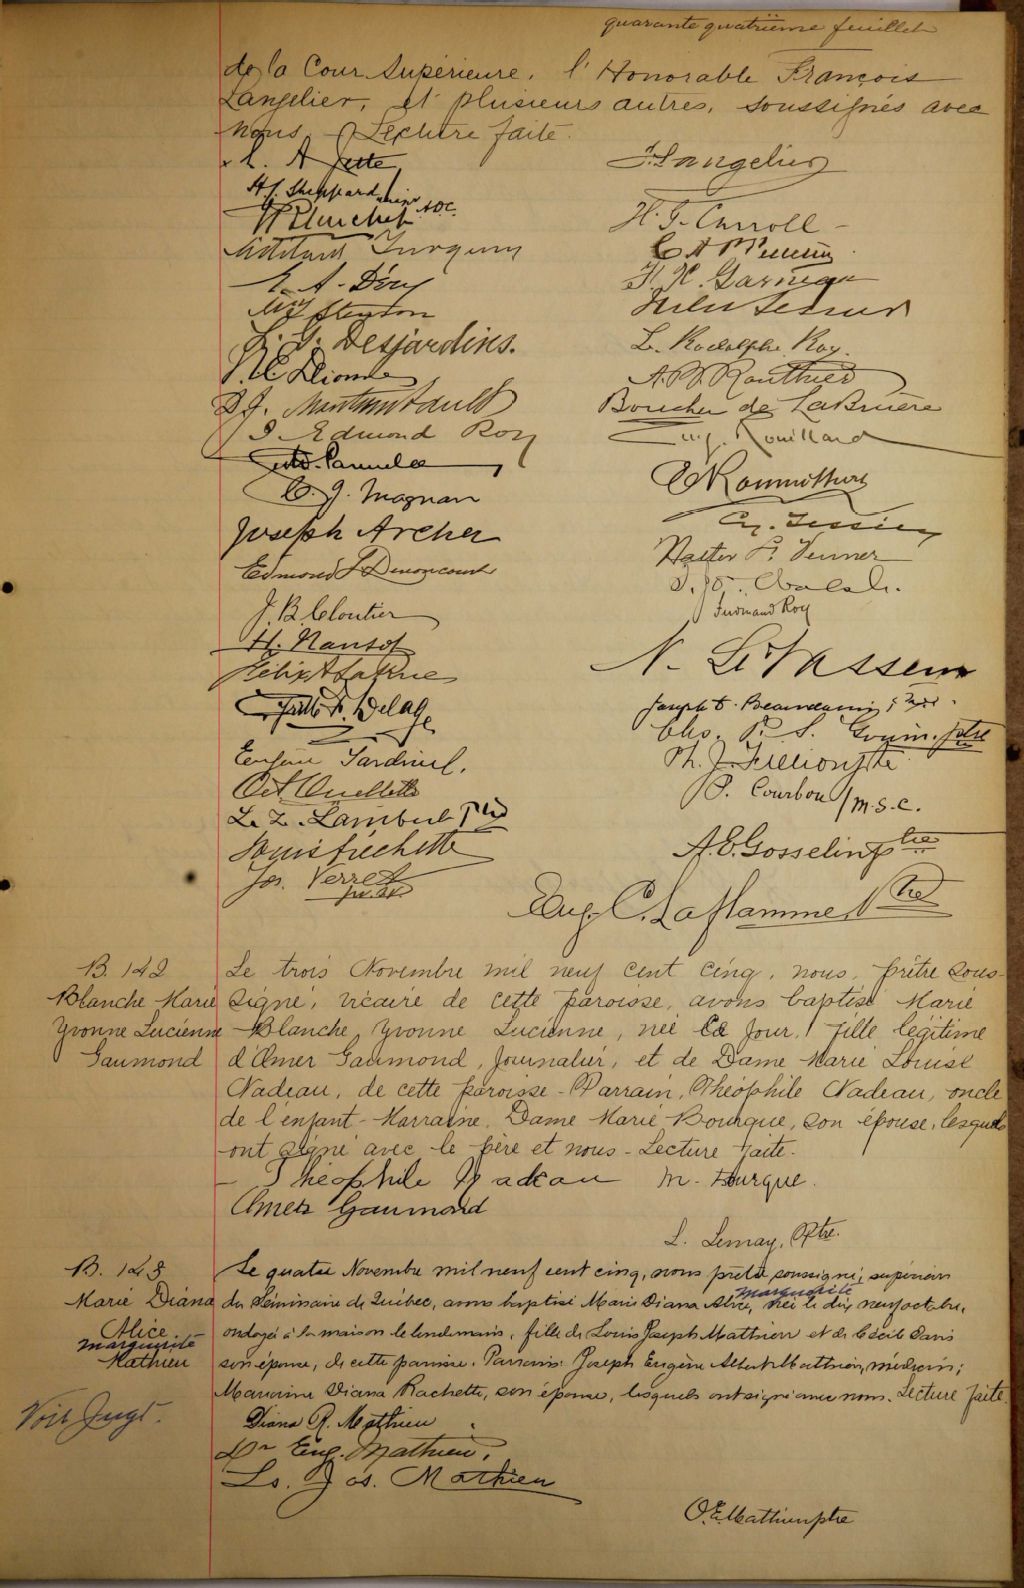 quarante quatrième feuillet
de la Cour Supérieure, l'Honorable François
Langelier, et plusieurs autres, soussignés avec
nous. Lecture faite.
L. A Jette
F. Langelier
H. J. Sheppard
A.D.C.
H. G. Carroll
Turgeon
E. A. Déry
F. X. Garneau
L. G. Desjardins.
L. Rodolphe Roy.
N. E. Dionne
A. B. Routhier
D. J. Montambault
Boucher de LaBruère
J. Edmond Roy
Eug. Rouillard
C. J. Magnan
Joseph Archer
Cy. Tessier
Edmond J Denoncourt
J. B. Cloutier
Ferdinand Roy
H. Nansot
N. LeVasseur
Ptre
Th. J. Fillion Ptre
Oct Ouellette
P. Courbon / m.s.c.
L. Z. Lambert Ptre
Louis Fréchette
A. E. Gosselin ptre
Jos. Verret
Eug. C. Laflamme Ptre
B. 142
Blanche Marie
Yvonne Lucienne
Gaumond
Le trois Novembre mil neuf cent cinq, nous, prêtre sous-
signé, vicaire de cette paroisse, avons baptisé Marie
Blanche, Yvonne Lucienne, née ce jour, fille légitime
d'Omer Gaumond, journalier, et de Dame Marie Louise
Nadeau, de cette paroisse - Parrain, Théophile Nadeau, oncle
de l'enfant - Marraine, Dame Marie Bourque, son épouse, lesquels
ont signé avec le père et nous - Lecture faite.
Théophile Nadeau M. Bourque.
Omer Gaumond
L. Lemay, Ptre.
B. 143
Marie Diana
Alice
marguerite
Mathieu
Voir Jugt.
Le quatre Novembre mil neuf cent cinq, nous prêtre soussigné, supérieur
marguerite
du Séminaire de Québec, avons baptisé Marie Diana Alice, née le dix neuf octobre,
ondoyé à la maison le lendemain, fille de Louis Joseph Matthieu et de Cécile Davis
son épouse, de cette paroisse. Parrain: Joseph Eugène Albert Matthieu, médecin;
Marraine Diana Rachette, son épouse, lesquels ont signé avec nous. Lecture faite.
Diana R. Mathieu
Dr Eug. Mathieu,
Ls. Jos. Mathieu
O. E. Mathieu ptre